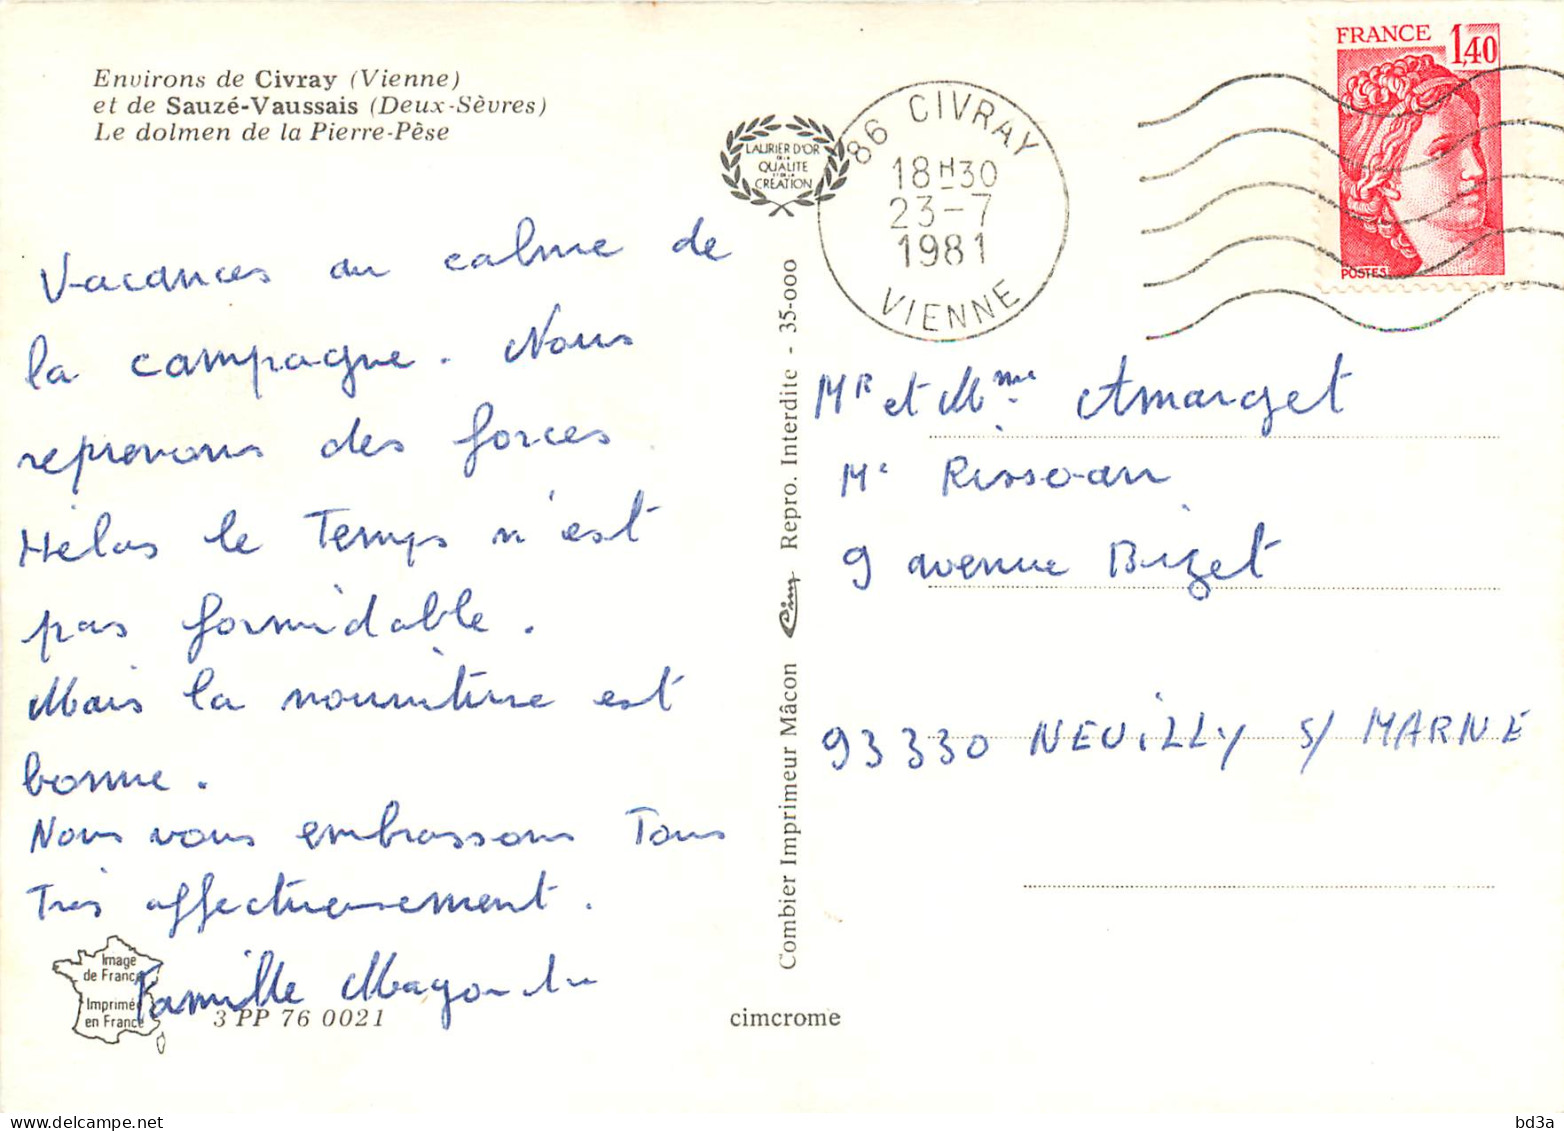 Environs de Civray (Vienne)
et de Sauzé-Vaussais (Deux-Sèvres)
Le dolmen de la Pierre-Pèse
LAURIER D'OR
DE LA
QUALITE
ET DE LA
CREATION
86 CIVRAY
18H30
23-7
1981
VIENNE
FRANCE
1,40
POSTES
Vacances au calme de
la campagne. Nous
reprenons des forces
Hélas le Temps n'est
pas formidable.
Mais la nourriture est
bonne.
Nous vous embrassons Tous
Très affectueusement.
Famille
Image
de France
Imprimé
en France
3 PP 76 0021
cimcrome
Combier Imprimeur Mâcon Cim Repro. Interdite - 35-000
MR et Mme Amarget
Me Rissoan
9 avenue Bizet
93330 NEUILLY S/ MARNE
bd3a